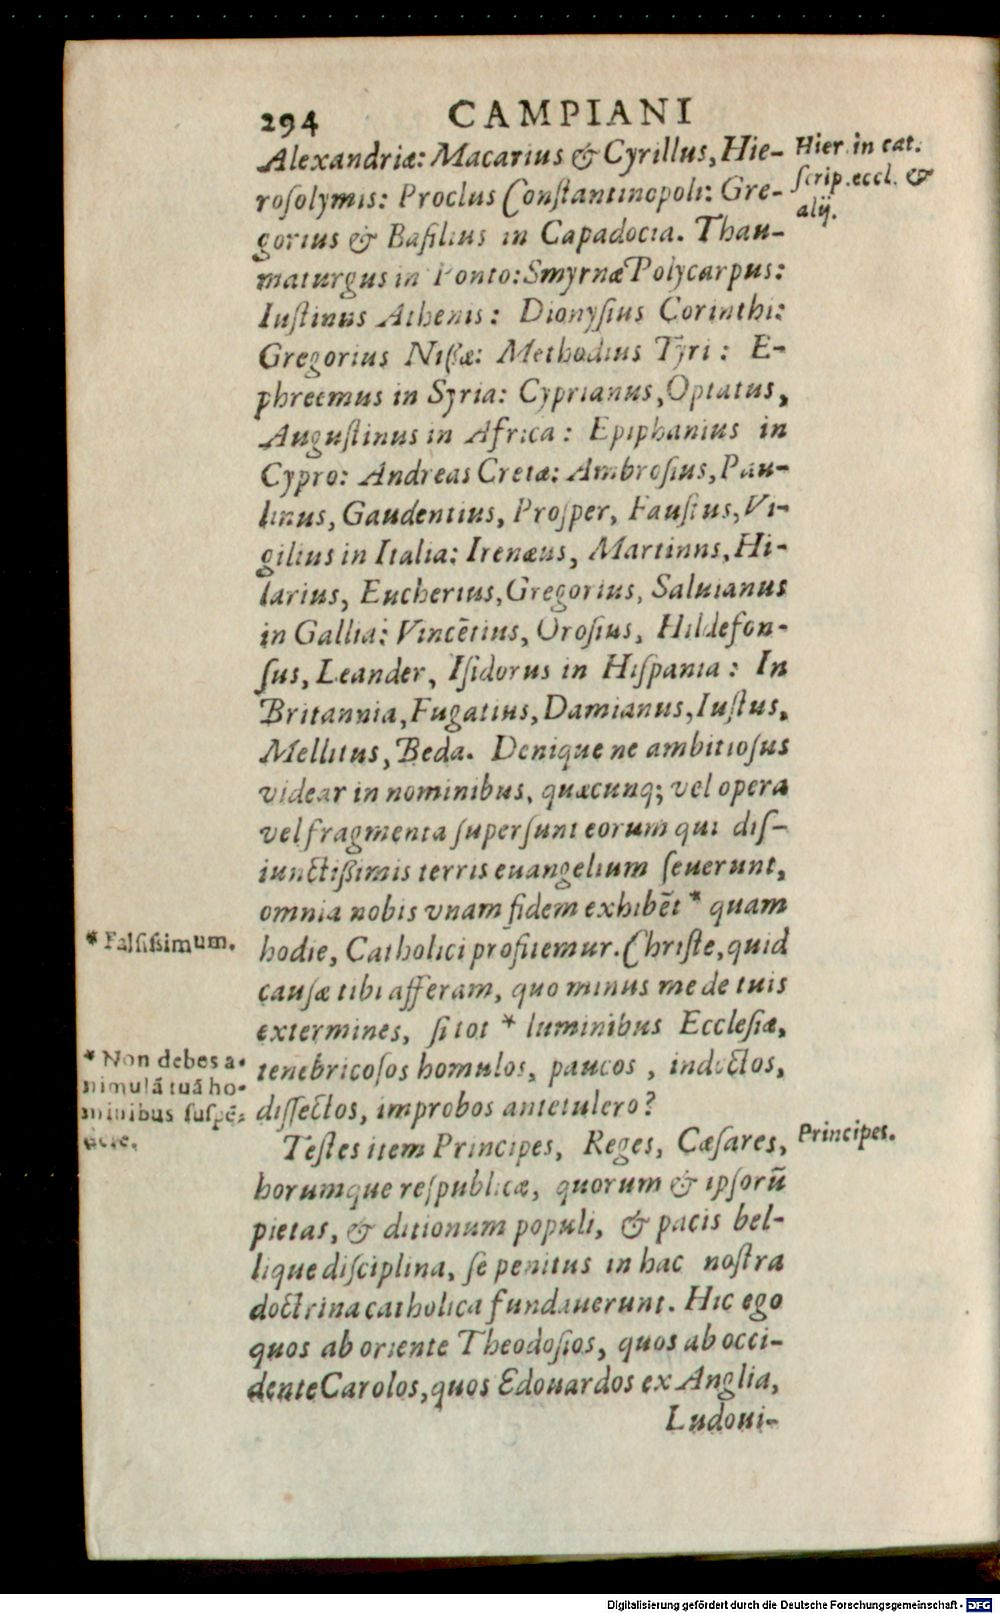 294 CAMPIANI
Alexandriæ: Macarius & Cyrillus, Hie-
roſolymis: Proclus Conſtantinopoli: Gre-
gorius & Baſilius in Capadocia. Thau-
maturgus in Ponto: Smyrnæ Polycarpus:
Iuſtinus Athenis: Dionyſius Corinthi:
Gregorius Nißæ: Methodius Tyri: E-
phreemus in Syria: Cyprianus, Optatus,
Auguſtinus in Africa: Epiphanius in
Cypro: Andreas Cretæ: Ambroſius, Pau-
linus, Gaudentius, Proſper, Fauſtus, Vi-
gilius in Italia: Irenæus, Martinns, Hi-
larius, Eucherius, Gregorius, Saluianus
in Gallia: Vincẽtius, Oroſius, Hildefon-
ſus, Leander, Iſidorus in Hiſpania: In
Britannia, Fugatius, Damianus, Iuſtus,
Mellitus, Beda. Denique ne ambitioſus
videar in nominibus, quæcunq; vel opera
vel fragmenta ſuperſunt eorum qui diſ-
iunctißimis terris euangelium ſeuerunt,
omnia nobis vnam fidem exhibẽt * quam
hodie, Catholici profitemur. Chriſte, quid
cauſæ tibi afferam, quo minus me de tuis
extermines, ſi tot * luminibus Eccleſiæ,
tenebricoſos homulos, paucos, indoctos,
diſſectos, improbos antetulero?
Teſtes item Principes, Reges, Cæſares,
horumque reſpublicæ, quorum & ipſorũ
pietas, & ditionum populi, & pacis bel-
lique diſciplina, ſe penitus in hac noſtra
doctrina catholica fundauerunt. Hic ego
quos ab oriente Theodoſios, quos ab occi-
dente Carolos, quos Edouardos ex Anglia,
Ludoui-
Hier. in cat.
ſcrip. eccl. &
alij.
* Falſißimum.
* Non debes a-
nimulã tuã ho-
minibus ſuſpẽ-
dere.
Principes.
Digitalisierung gefördert durch die Deutsche Forschungsgemeinschaft - DFG